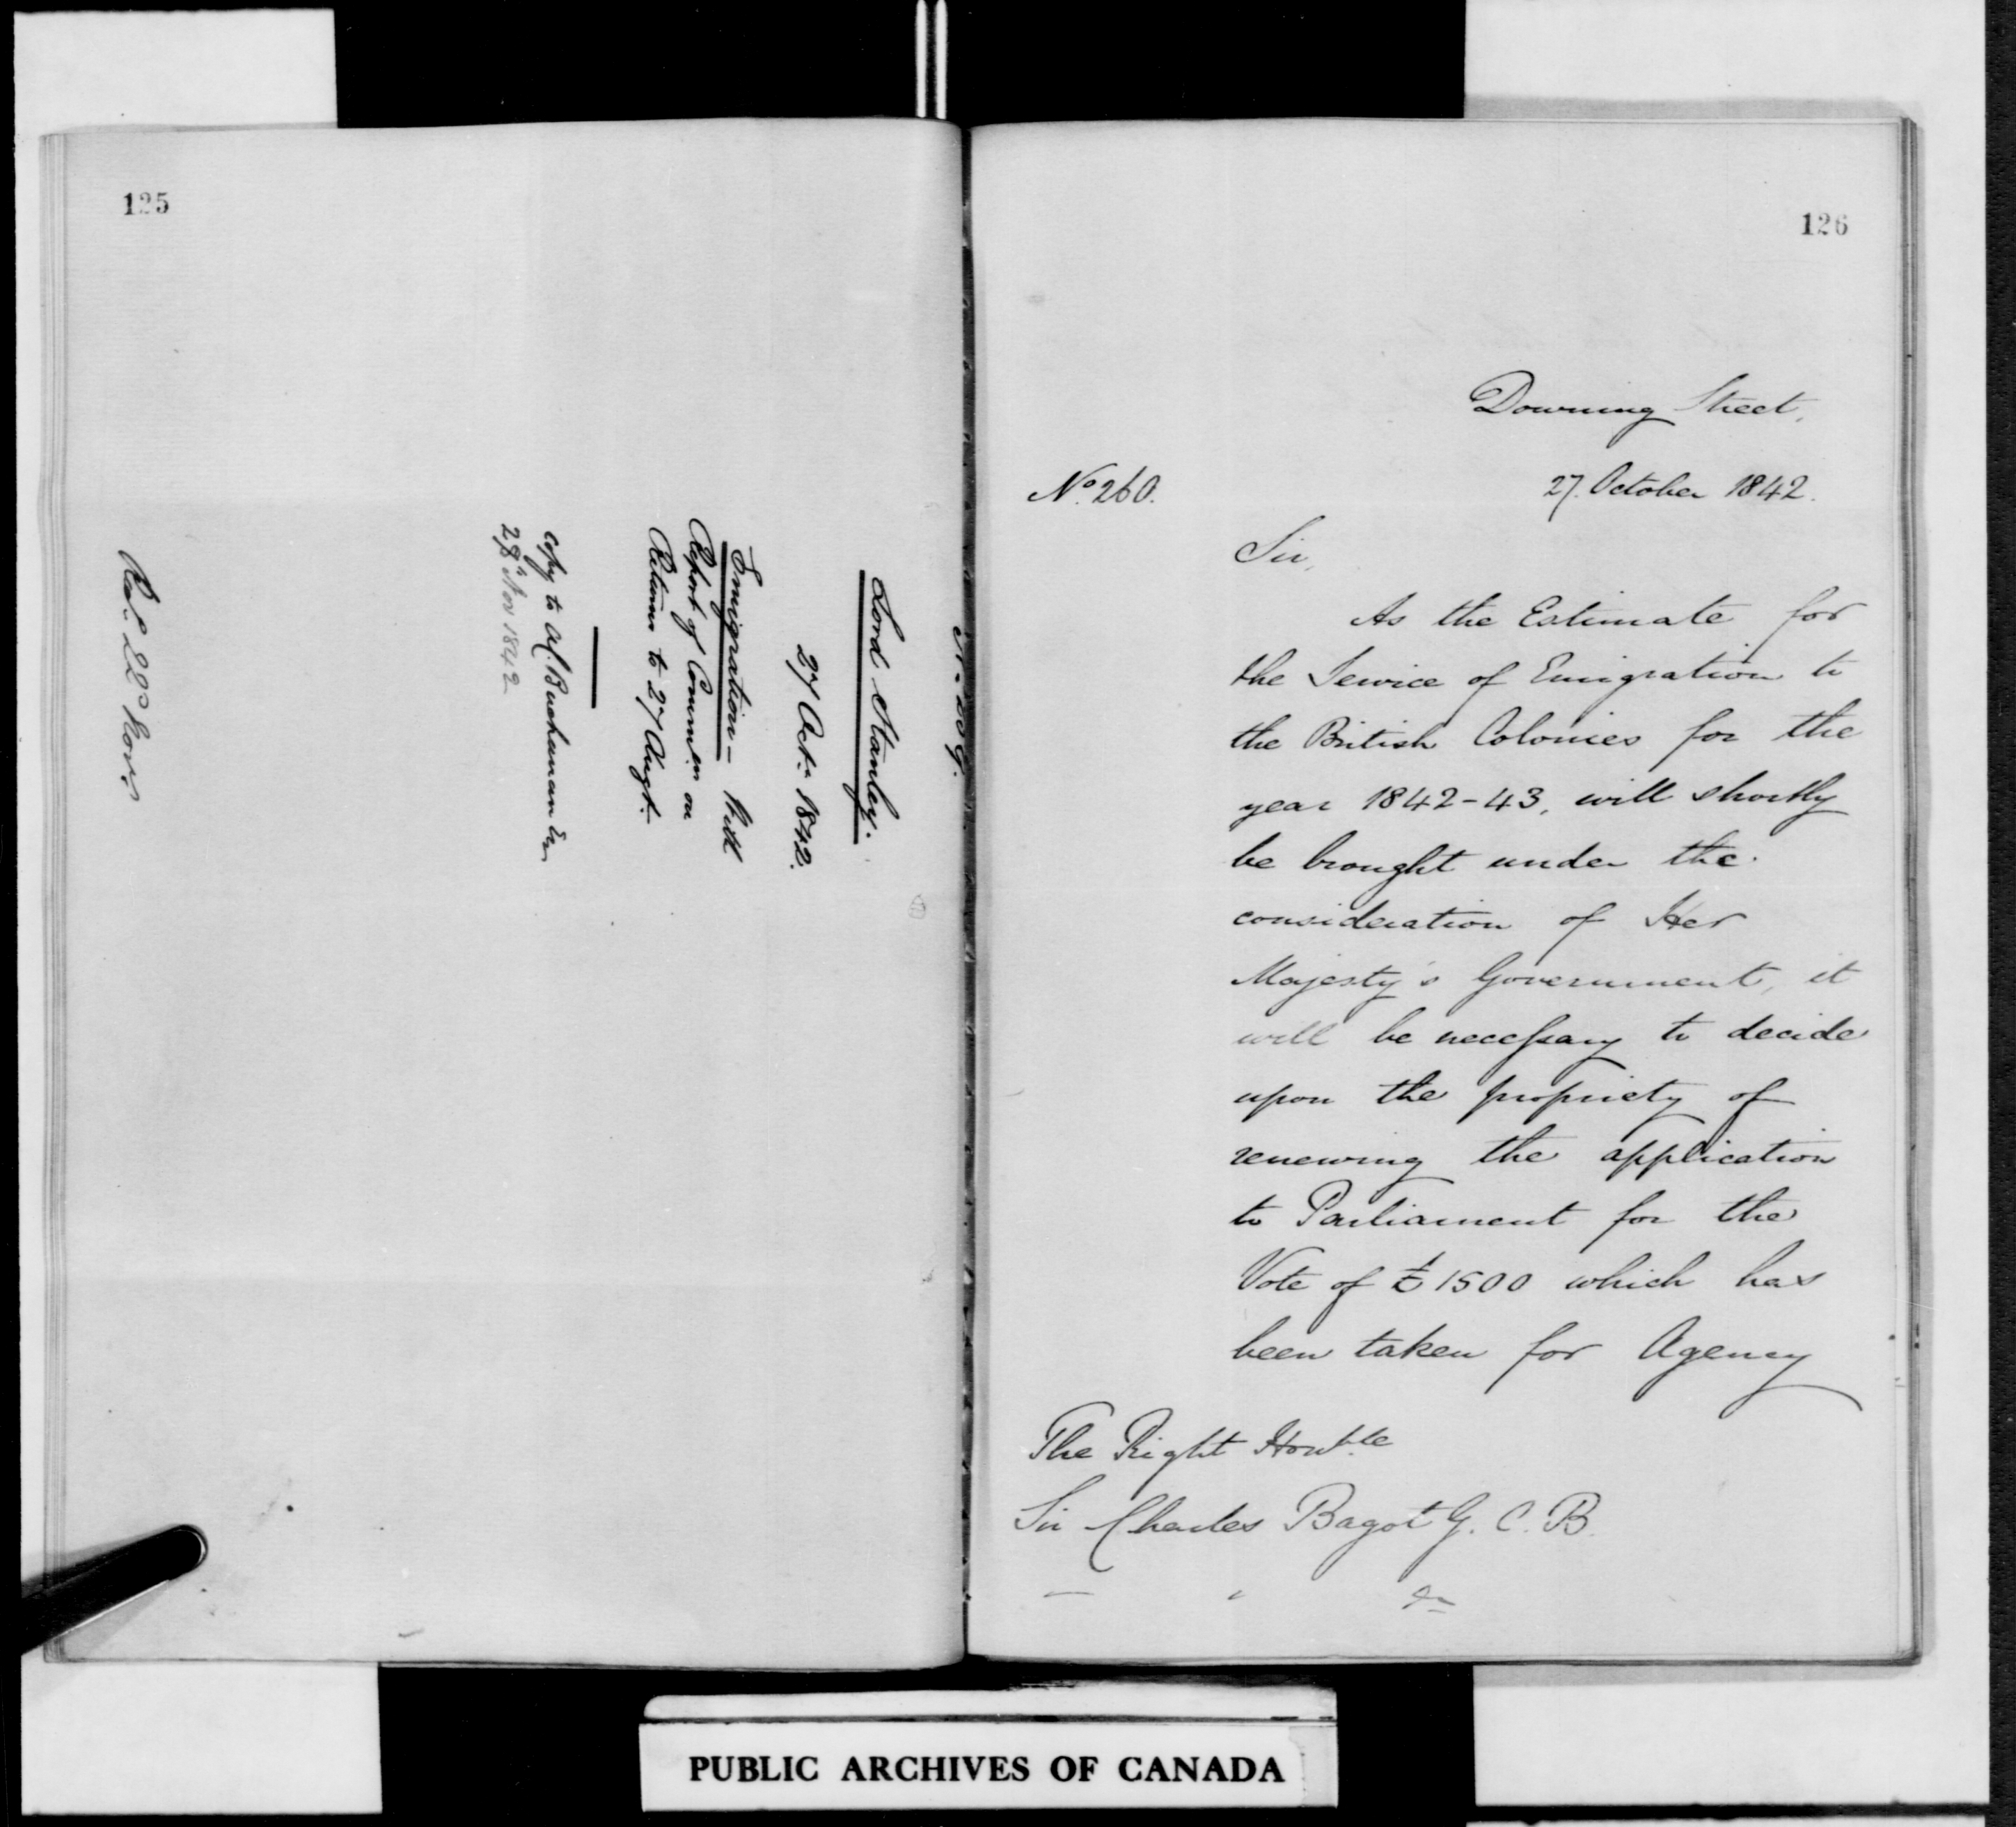 125
No 259.
Lord Stanley.
27 Oct. 1842.
Emigration –
Report of Commrs on
Returns to 27 Augt.
Copy to A.C. Buchanan Esqr
28 Nov 1842
126
Downing Street,
No. 260.
27. October 1842.
Sir,
As the Estimate for
the Service of Emigration to
the British Colonies for the
year 1842-43, will shortly
be brought under the
consideration of Her
Majesty's Government, it
will be necessary to decide
upon the propriety of
renewing the application
to Parliament for the
Vote of £1500 which has
been taken for Agency
The Right Honble
Sir Charles Bagot G. C. B.
PUBLIC ARCHIVES OF CANADA